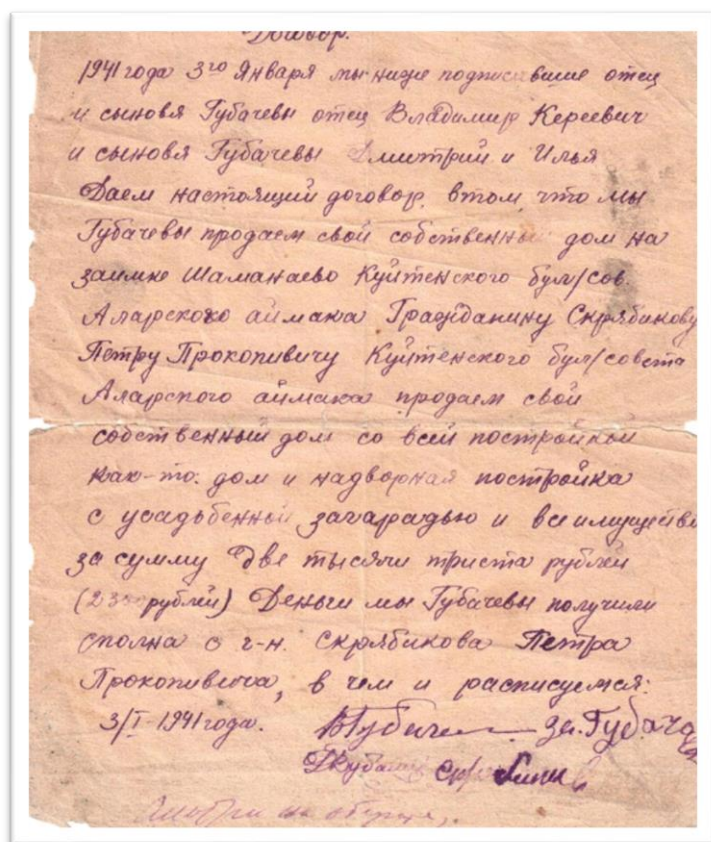 Договор.
1941 года 3го Января мы ниже подписавшие отец
и сыновя Губачевы отец Владимир Кереевич
и сыновя Губачевы Дмитрий и Илья
Даем настоящий договор. втом что мы
Губачевы продаем свой собственный дом на
заимке Шаманаево Куйтенского бул/сов.
Аларского аймака Гражданину Скрябикову
Петру Прокопивичу Куйтенского бул/совета
Аларского аймака продаем свой
собственный дом со всей постройкой
как-то: дом и надворная постройка
с усадьбенной загарадью и все имуществ
за сумму две тысячи триста рублей
(2300 рублей) Деньги мы Губачевы получили
сполна с г-н. Скрябикова Петра
Прокопивича, в чем и расписуемся:
3/I-1941 года. за. Губача
Смотри на обороте.